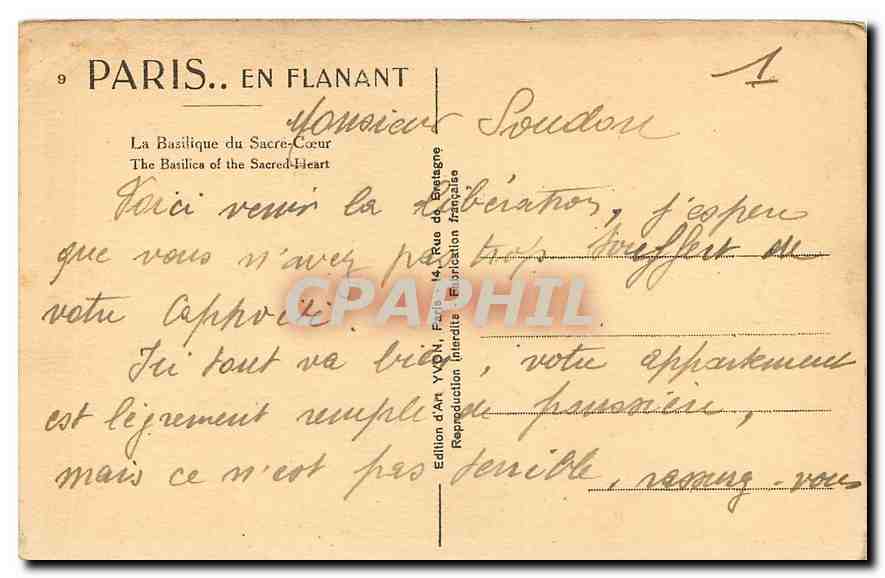 9 PARIS.. EN FLANANT
1
La Basilique du Sacré-Cœur
The Basilica of the Sacred-Heart
Monsieur Soudou
Voici venir la libération, j'espere
que vous n'avez pas trop souffert de
votre
Ici tout va bien, votre appartement
est légrement remple de poussière,
mais ce n'est pas terrible, rassurez-vous
Edition d'Art YVON, Paris - 14, Rue de Bretagne
Reproduction Interdite - Fabrication française
CPAPHIL